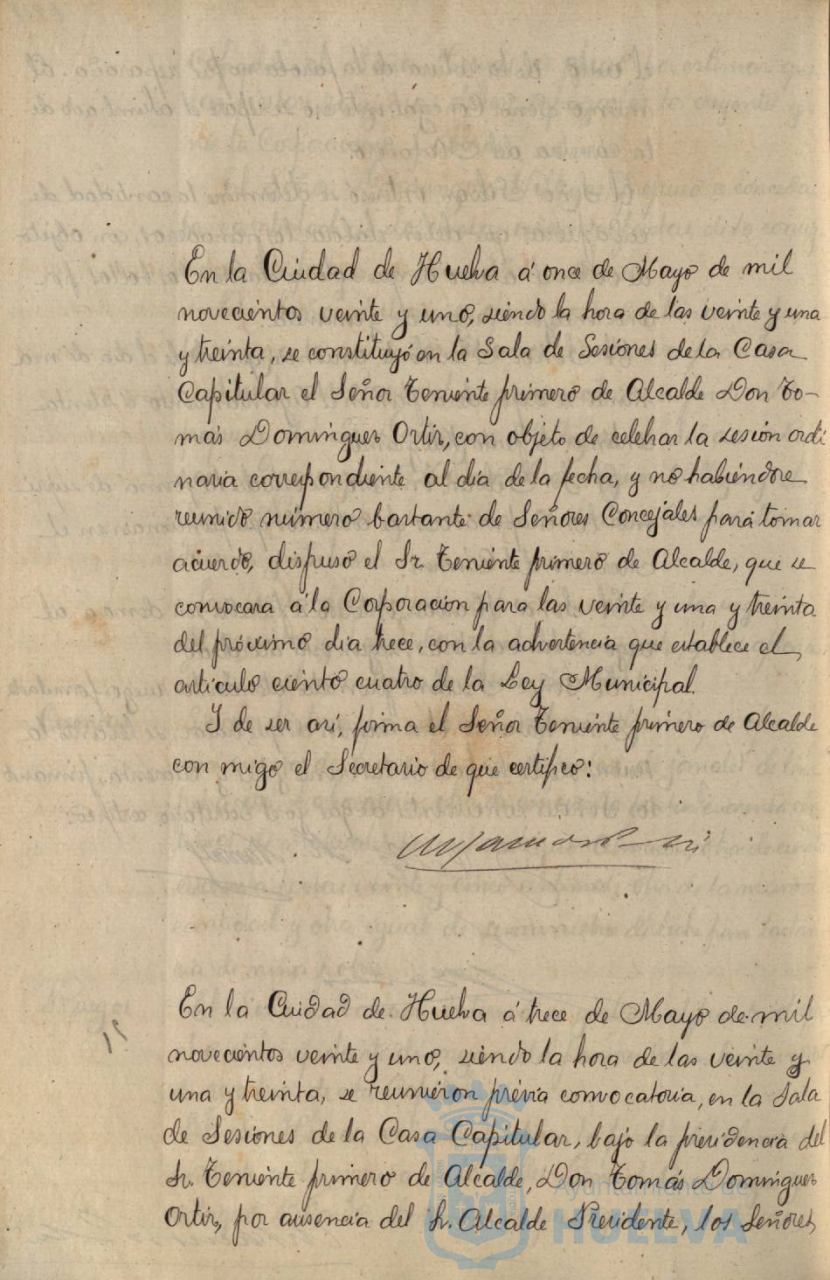 En la Ciudad de Huelva á once de Mayo de mil
novecientos veinte y uno, siendo la hora de las veinte y una
y treinta, se constituyó en la Sala de Sesiones de la Casa
Capitular el Señor Teniente primero de Alcalde Don To-
más Dominguez Ortiz, con objeto de celebrar la sesión ordi
naria correspondiente al día de la fecha, y no habiéndose
reunido número bastante de Señores Concejales para tomar
acuerdo, dispuso el Sr. Teniente primero de Alcalde, que se
convocara á la Corporación para las veinte y una y treinta
del próximo día trece, con la advertencia que establece el
artículo ciento cuatro de la Ley Municipal.
Y de ser así, firma el Señor Teniente primero de Alcalde
con migo el Secretario de que certifico:
En la Ciudad de Huelva á trece de Mayo de mil
novecientos veinte y uno, siendo la hora de las veinte y
una y treinta, se reunieron prévia convocatoria, en la Sala
de Sesiones de la Casa Capitular, bajo la presidencia del
Sr. Teniente primero de Alcalde, Don Tomás Dominguez
Ortiz, por ausencia del Sr. Alcalde Presidente, los Señores
HUELVA